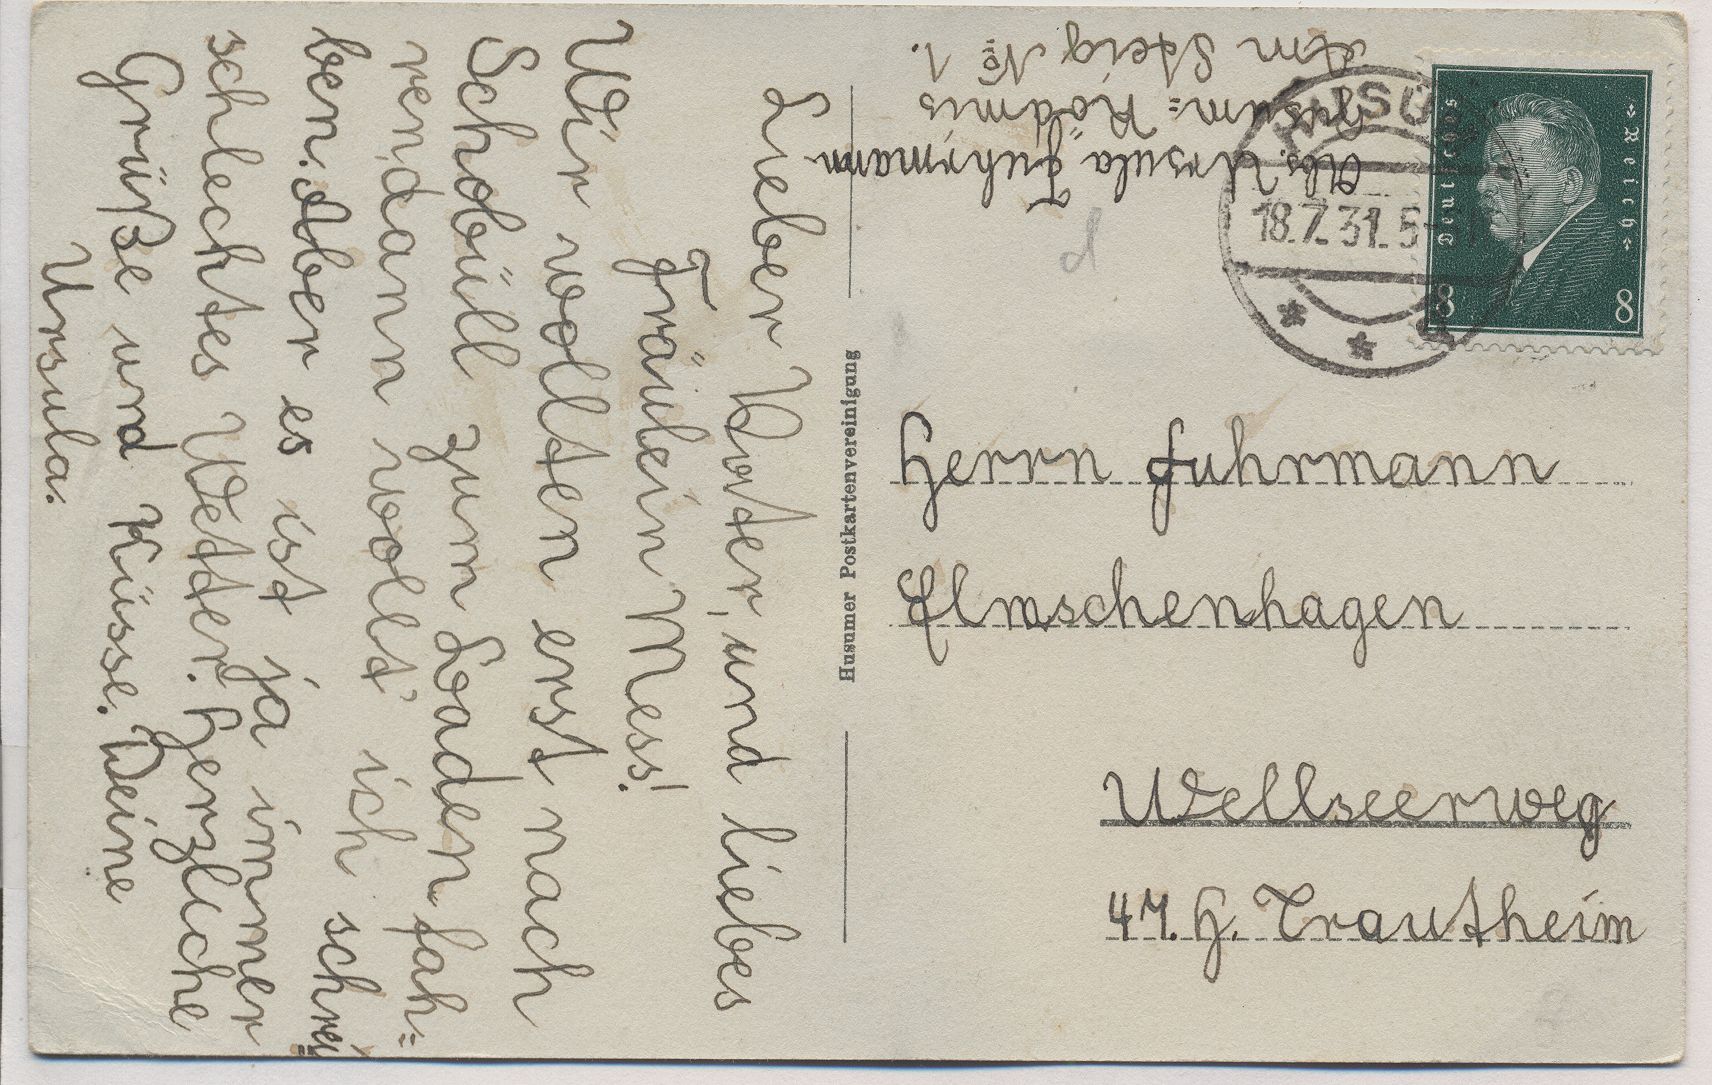 Lieber Vater, und liebes
Fräulein Mess!
Wir wollten erst nach
Schobüll zum Baden fah=
ren dann wollt' ich schrei=
ben. Aber es ist ja immer
schlechtes Wetter. Herzliche
Grüße und Küsse. Deine
Ursula.
Husumer Postkartenvereinigung
Abs. Ursula Fuhrmann
Husum= Rödmis
Am Steig No 1.
HUSUM
18.7.31.
Deutsches Reich
8 8
Herrn Fuhrmann
Elmschenhagen
Wellseerweg
47. H. Trautheim